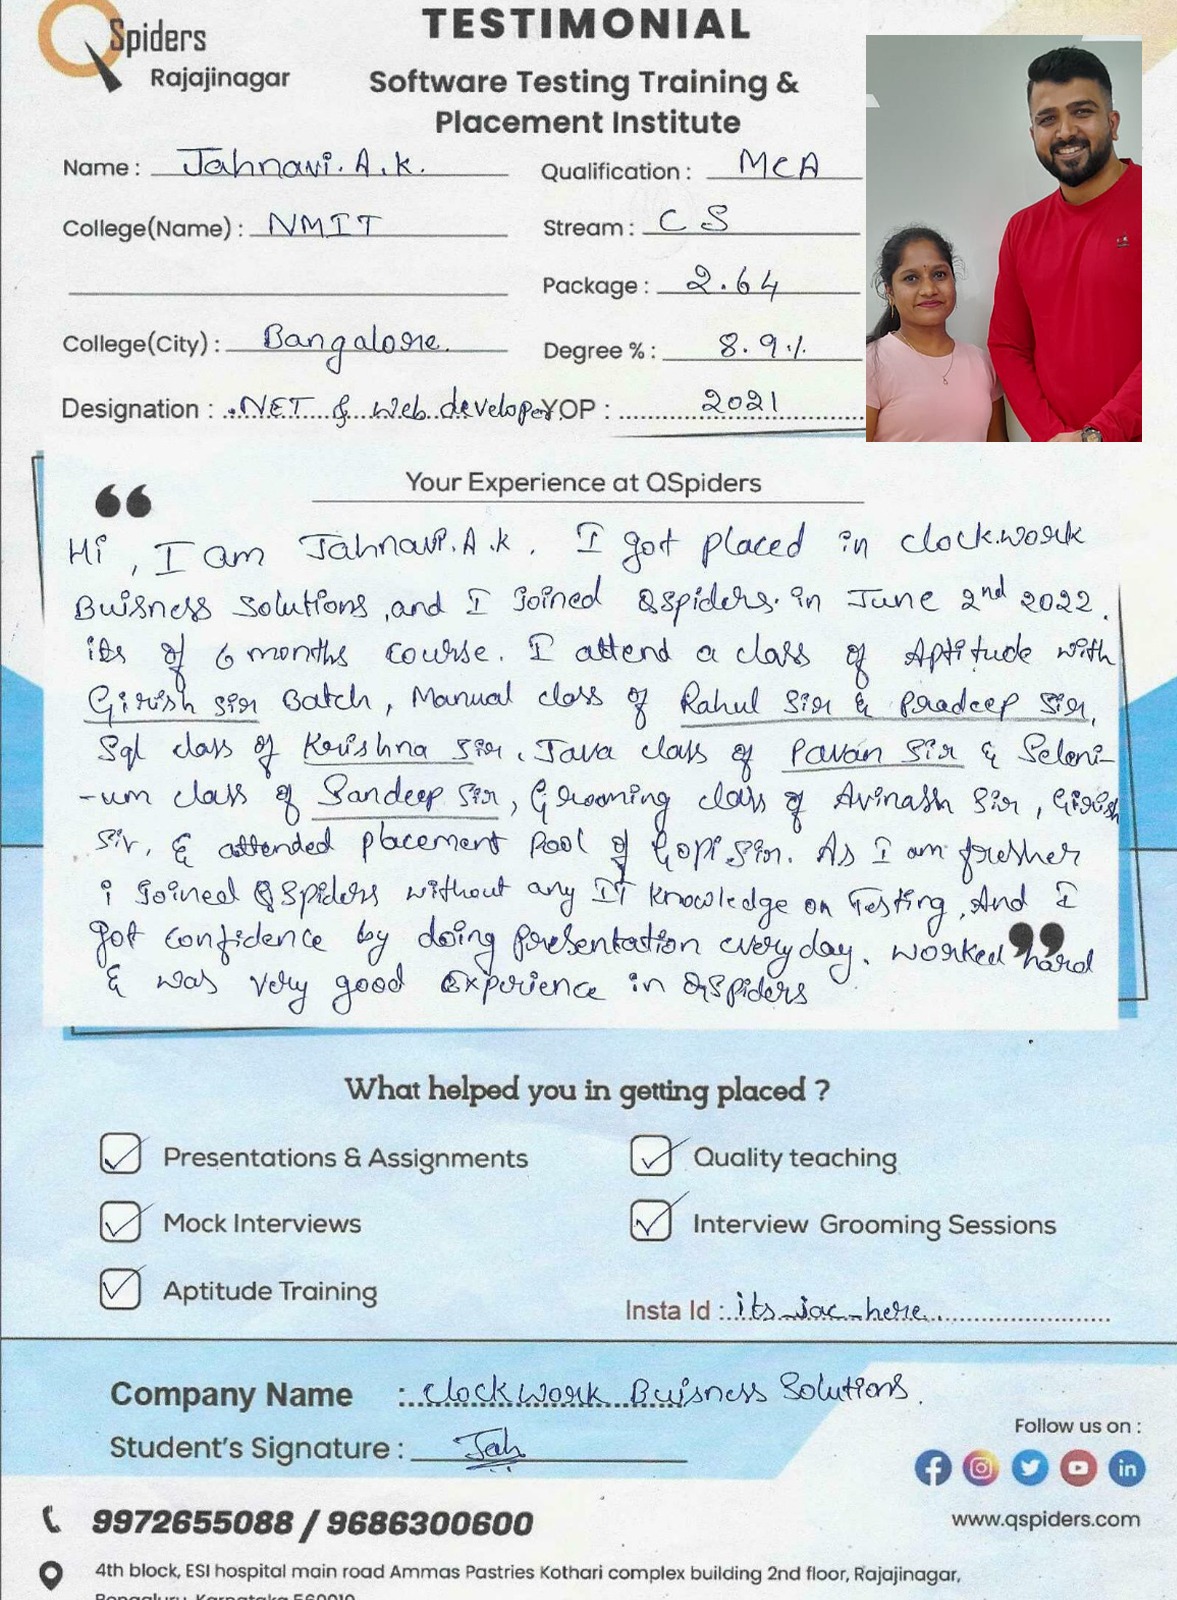 QSpiders
Rajajinagar
TESTIMONIAL
Software Testing Training &
Placement Institute
Name : Jahnavi. A. K.
Qualification : MCA
College(Name) : NMIT
Stream : CS
Package : 2.64
College(City) : Bangalore.
Degree % : 8.9%
Designation : .NET & Web developer
YOP : 2021
Your Experience at QSpiders
“
Hi, I am Jahnavi. A. K. I got placed in clockwork
Buisness Solutions, and I Joined QSpiders. in June 2nd 2022.
its of 6 months course. I attend a class of Aptitude with
Girish Sir Batch, Manual class of Rahul Sir & Pradeep Sir,
Sql class of Krishna Sir, Java class of Pavan Sir & Seleni-
-um class of Sandeep Sir, Grooming class of Avinash Sir, Girish
Sir, & attended placement Pool of Gopi Sir. As I am fresher
i Joined QSpiders without any IT knowledge on Testing, And I
got confidence by doing presentation everyday. worked hard
& was very good Experience in QSpiders
”
What helped you in getting placed ?
Presentations & Assignments
Quality teaching
Mock Interviews
Interview Grooming Sessions
Aptitude Training
Insta Id : its_jac_here
Company Name : Clockwork Buisness Solutions.
Student's Signature : Jah
Follow us on :
9972655088 / 9686300600
www.qspiders.com
4th block, ESI hospital main road Ammas Pastries Kothari complex building 2nd floor, Rajajinagar,
Bengaluru, Karnataka 560010